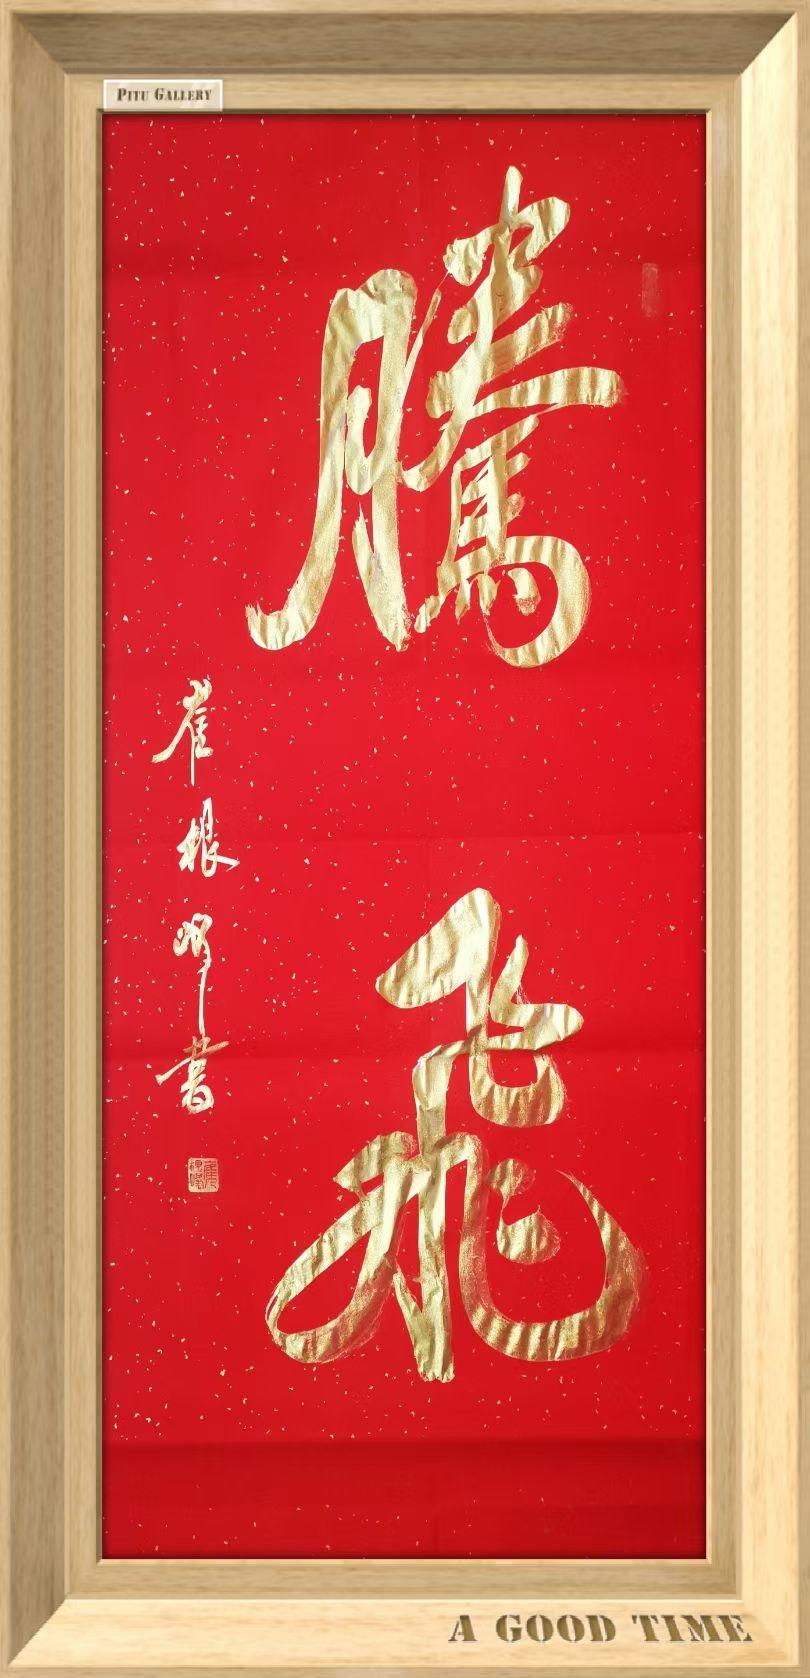 PITU GALLERY
騰飛
崔根峰書
A GOOD TIME